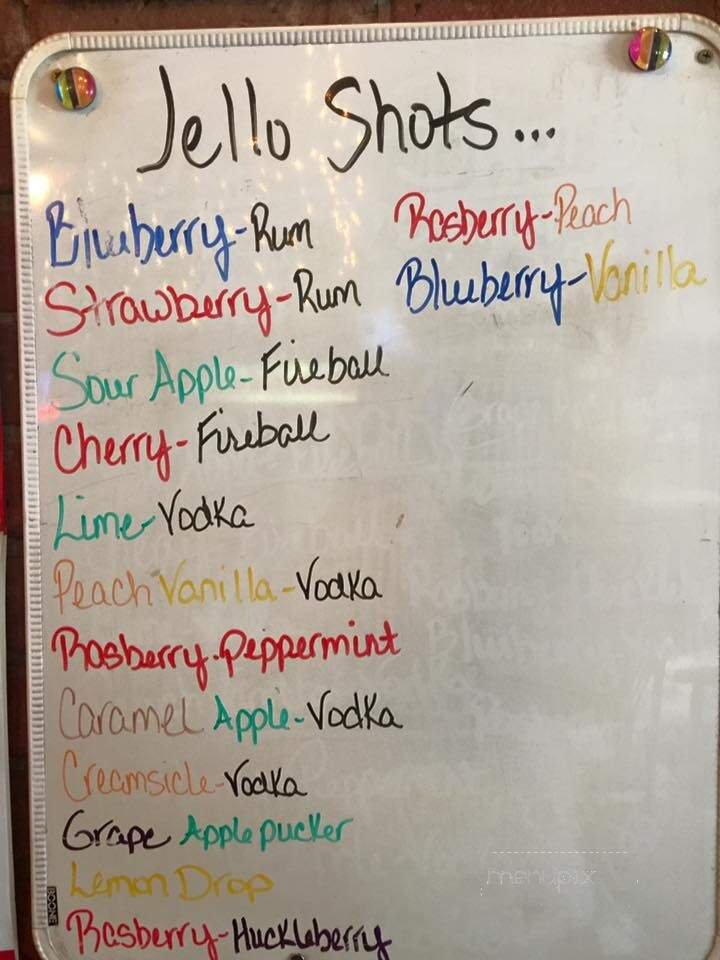 Jello Shots...
Blueberry-Rum
Strawberry-Rum
Sour Apple-Fireball
Cherry-Fireball
Lime-Vodka
Peach Vanilla-Vodka
Rasberry-Peppermint
Caramel Apple-Vodka
Creamsicle-Vodka
Grape Applepucker
Lemon Drop
Rasberry-Huckleberry
Rasberry-Peach
Blueberry-Vanilla
BOONE
menupix